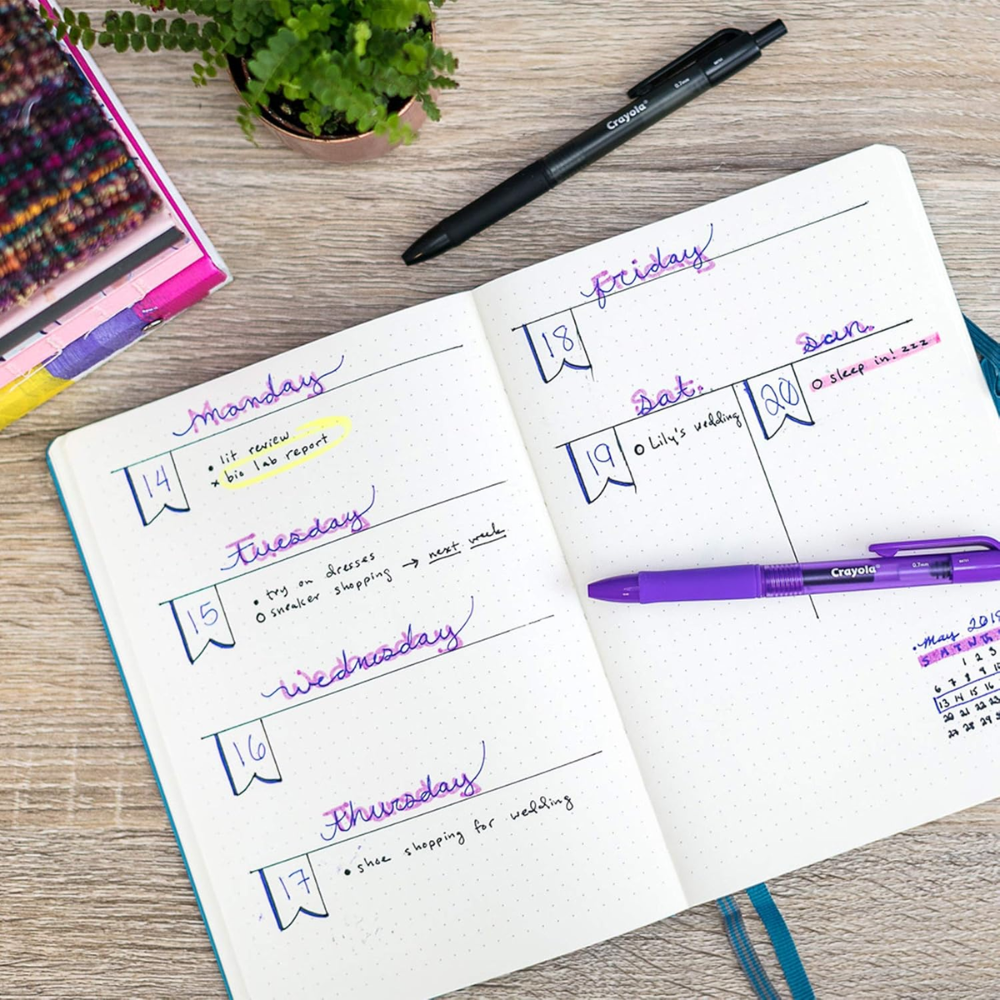 Monday
14
• lit review
x bio lab report
Tuesday
15
• try on dresses
O sneaker shopping → next week
Wednesday
16
Thursday
17
• shoe shopping for wedding
Friday
18
Sat.
19
O Lily's wedding
Sun.
20
O sleep in! zzz
May 201
1 2 3
6 7 8 9 10
13 14 15 16
20 21 22 23
27 28 29
Crayola
0.7mm
Crayola
0.7mm